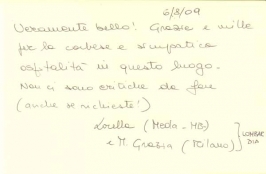 6/8/09
Veramente bello! Grazie e mille
per la cortese e simpatica
ospitalità in questo luogo.
Non ci sono critiche da fare
(anche se richieste!)
Lorella (Meda - MB)
e M. Grazia (Milano)
LOMBAR
DIA